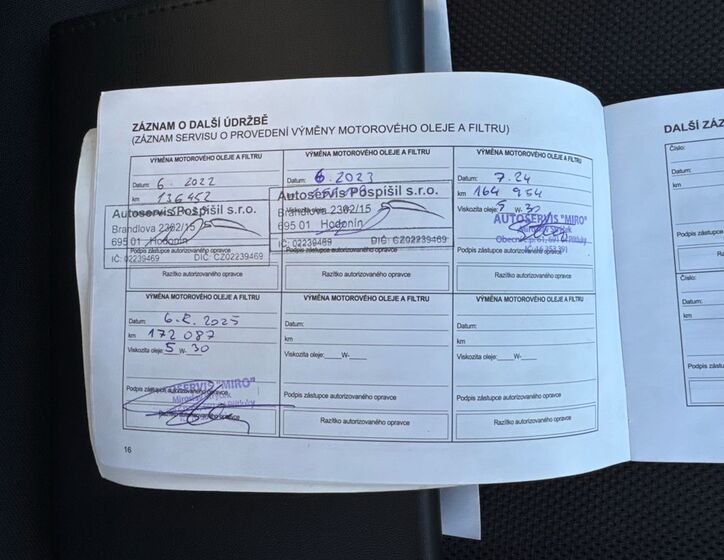 ZÁZNAM O DALŠÍ ÚDRŽBĚ
(ZÁZNAM SERVISU O PROVEDENÍ VÝMĚNY MOTOROVÉHO OLEJE A FILTRU)
VÝMĚNA MOTOROVÉHO OLEJE A FILTRU
Datum: 6. 2022
km 136452
Autoservis Pospíšil s.r.o.
Brandlova 2362/15
695 01 Hodonín
Podpis zástupce autorizovaného opravce
IČ: 02239469 DIČ: CZ02239469
Razítko autorizovaného opravce
VÝMĚNA MOTOROVÉHO OLEJE A FILTRU
Datum: 6. 2023
km
Autoservis Pospíšil s.r.o.
Brandlova 2362/15
695 01 Hodonín
IČ: 02239469 DIČ: CZ02239469
Podpis zástupce autorizovaného opravce
Razítko autorizovaného opravce
VÝMĚNA MOTOROVÉHO OLEJE A FILTRU
Datum: 7.24
km 164 954
Viskozita oleje: 5 W- 30
AUTOSERVIS "MIRO"
Podpis zástupce
Razítko autorizovaného opravce
VÝMĚNA MOTOROVÉHO OLEJE A FILTRU
Datum: 6.2.2025
km 172 087
Viskozita oleje: 5 W- 30
AUTOSERVIS "MIRO"
Podpis zástupce autorizovaného opravce
VÝMĚNA MOTOROVÉHO OLEJE A FILTRU
Datum:
km
Viskozita oleje:____W-____
Podpis zástupce autorizovaného opravce
Razítko autorizovaného opravce
VÝMĚNA MOTOROVÉHO OLEJE A FILTRU
Datum:
km
Viskozita oleje:____W-____
Podpis zástupce autorizovaného opravce
Razítko autorizovaného opravce
16
DALŠÍ ZÁZ
Číslo:
Datum:
km
Podpis zás
Číslo:
Datum:
km
Podpis